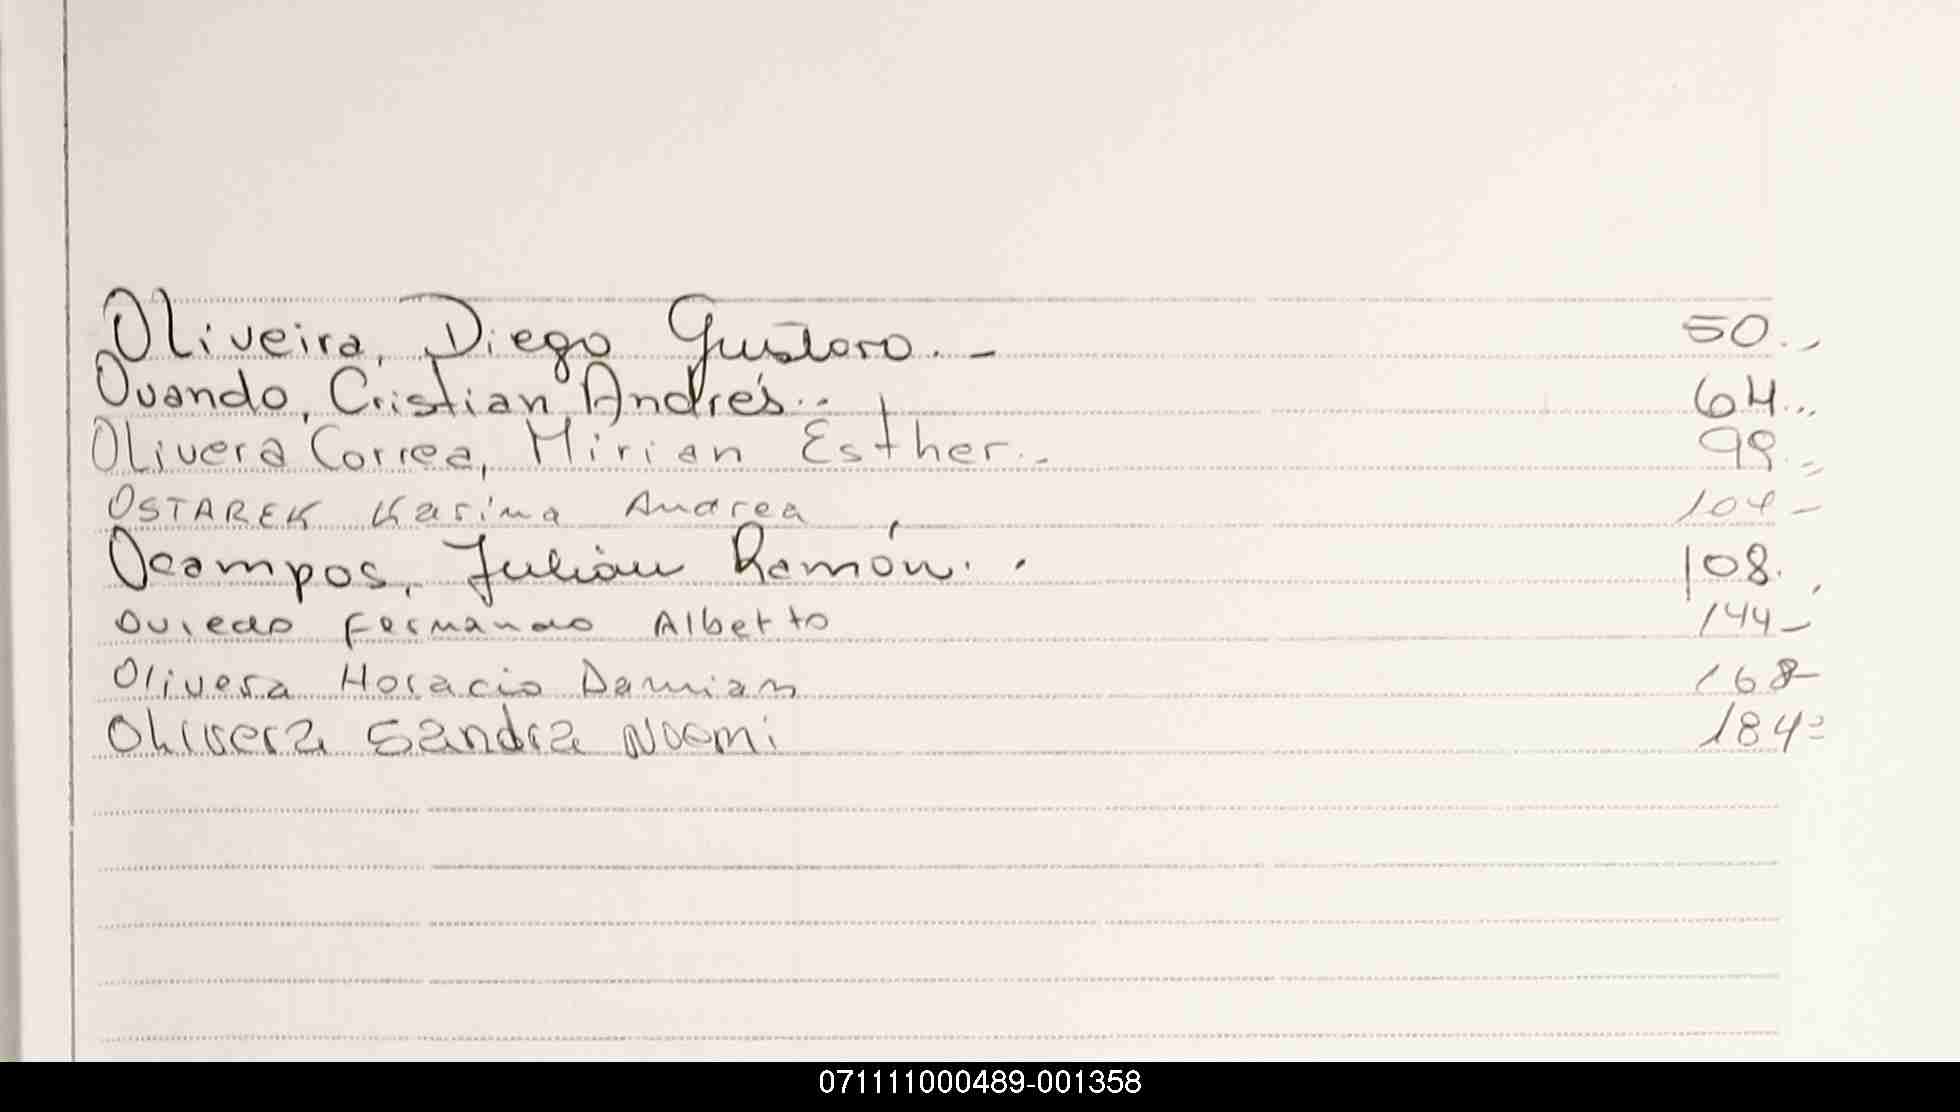 Oliveira, Diego Gustavo. - 50.-
Ovando, Cristian Andrés.. 64...
Olivera Correa, Mirian Esther.- 99.=
OSTAREK Karina Andrea 104-
Ocampos, Julián Ramón.. 108.
Oviedo Fernando Alberto 144-
Olivera Horacio Damian 168-
Olivera Sandra Noemi 184=
071111000489-001358